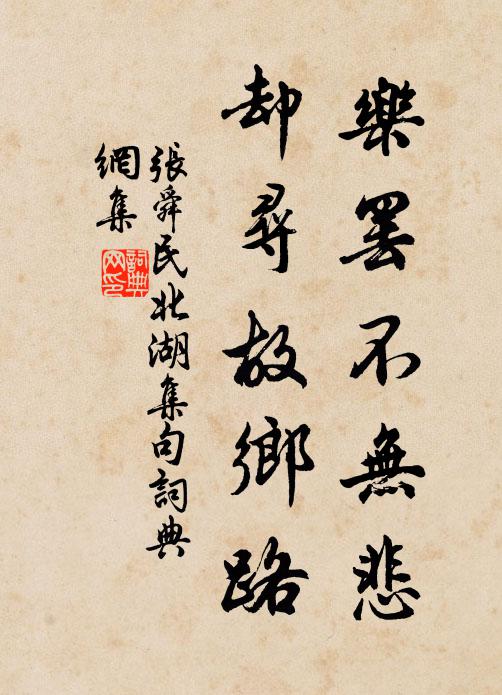 樂罷不無悲
却尋故鄉路
張舜民北湖集句詞典
網集
詞典
网印